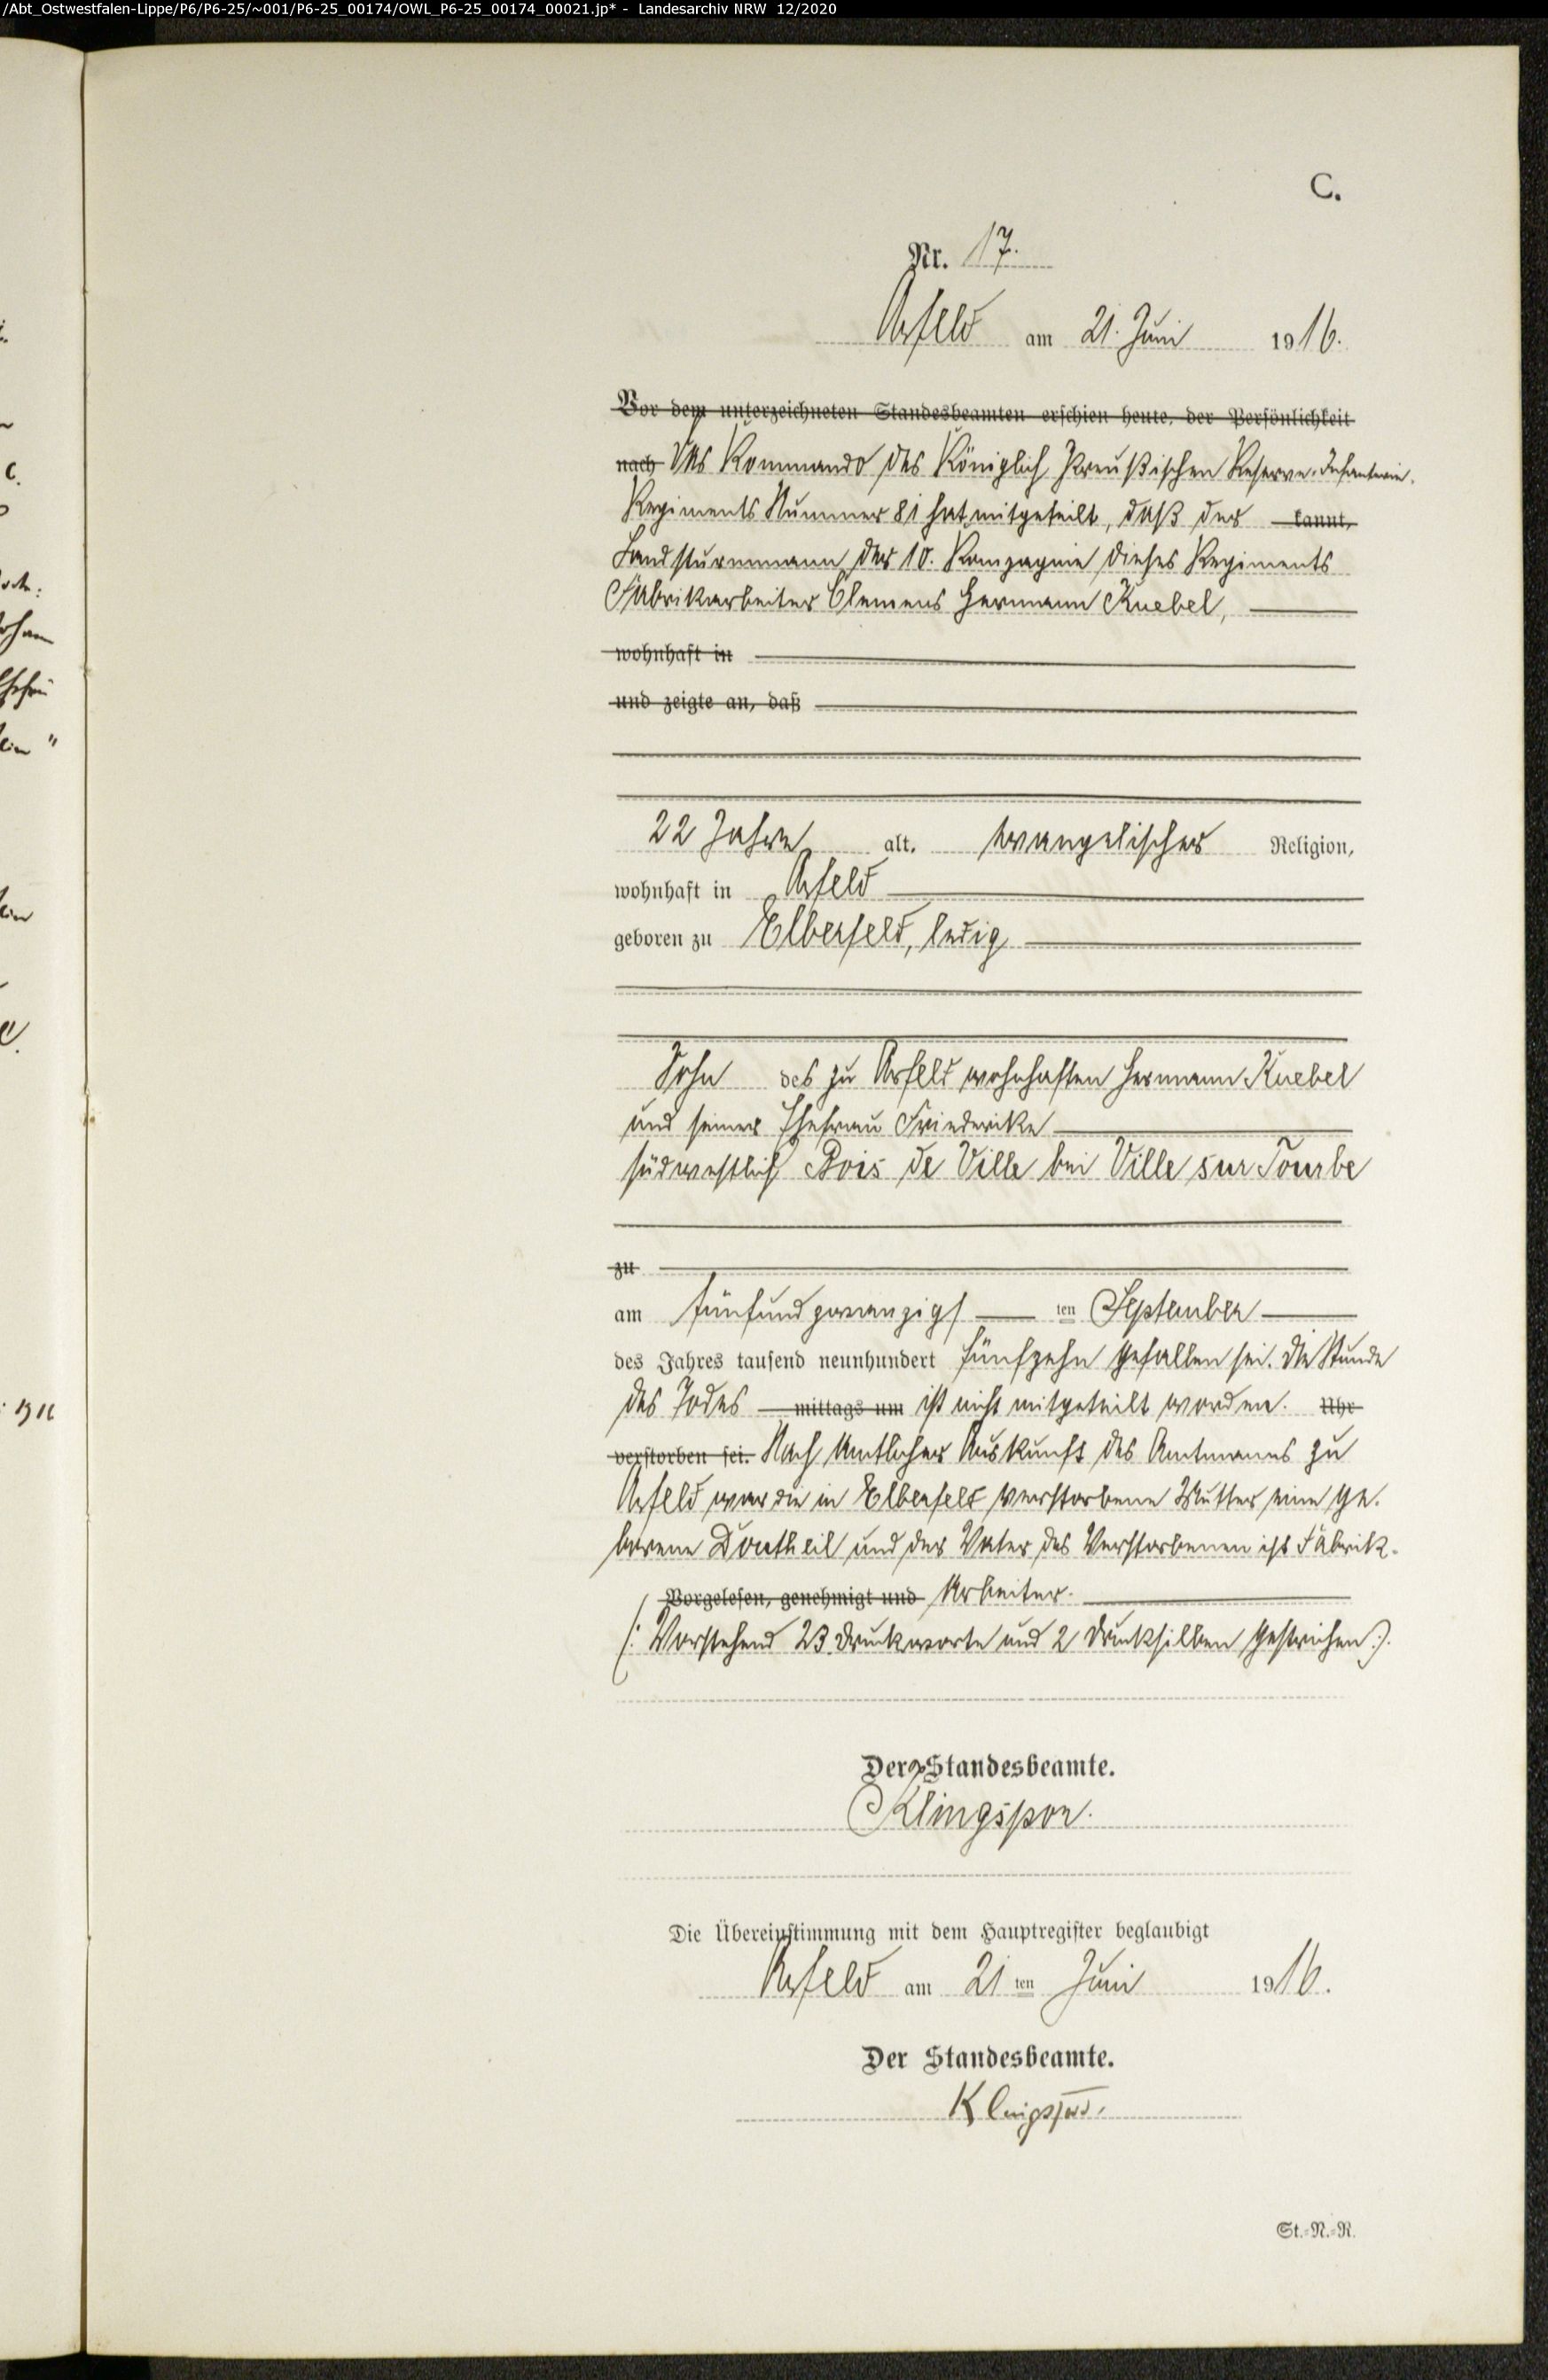 /Abt_Ostwestfalen-Lippe/P6/P6-25/~001/P6-25_00174/OWL_P6-25_00174_00021.jp* - Landesarchiv NRW 12/2020
C.
Nr. 17.
Arfeld am 21. Juni 1916.
Vor dem unterzeichneten Standesbeamten erschien heute, der Persönlichkeit
nach Das Kommando des Königlich Preußischen Reserve-Infanterie-
Regiments Nummer 81 hat mitgeteilt, daß der kannt,
Landsturmmann der 10. Kompagnie dieses Regiments
Fabrikarbeiter Clemens Hermann Knebel,
wohnhaft in
und zeigte an, daß
22 Jahre alt, evangelischer Religion,
wohnhaft in Arfeld
geboren zu Elberfeld, ledig
Sohn des zu Arfeld wohnhaften Hermann Knebel
und seiner Ehefrau Friederike
südwestlich Bois de Ville bei Ville sur Tourbe
zu
am fünfundzwanzigs ten September
des Jahres tausend neunhundert fünfzehn gefallen sei. Die Stunde
des Todes mittags um ist nicht mitgeteilt worden. Uhr
verstorben sei. Nach amtlicher Auskunft des Amtmanns zu
Arfeld war die in Elberfeld verstorbene Mutter eine ge-
borene Dontheil und der Vater des Verstorbenen ist Fabrik-
Vorgelesen, genehmigt und Arbeiter.
(: Vorstehend 23 Druckworte und 2 Drucksilben gestrichen :).
Der Standesbeamte.
Klingspor.
Die Übereinstimmung mit dem Hauptregister beglaubigt
Arfeld am 21 ten Juni 1916.
Der Standesbeamte.
Klingspor.
St.-N.-R.